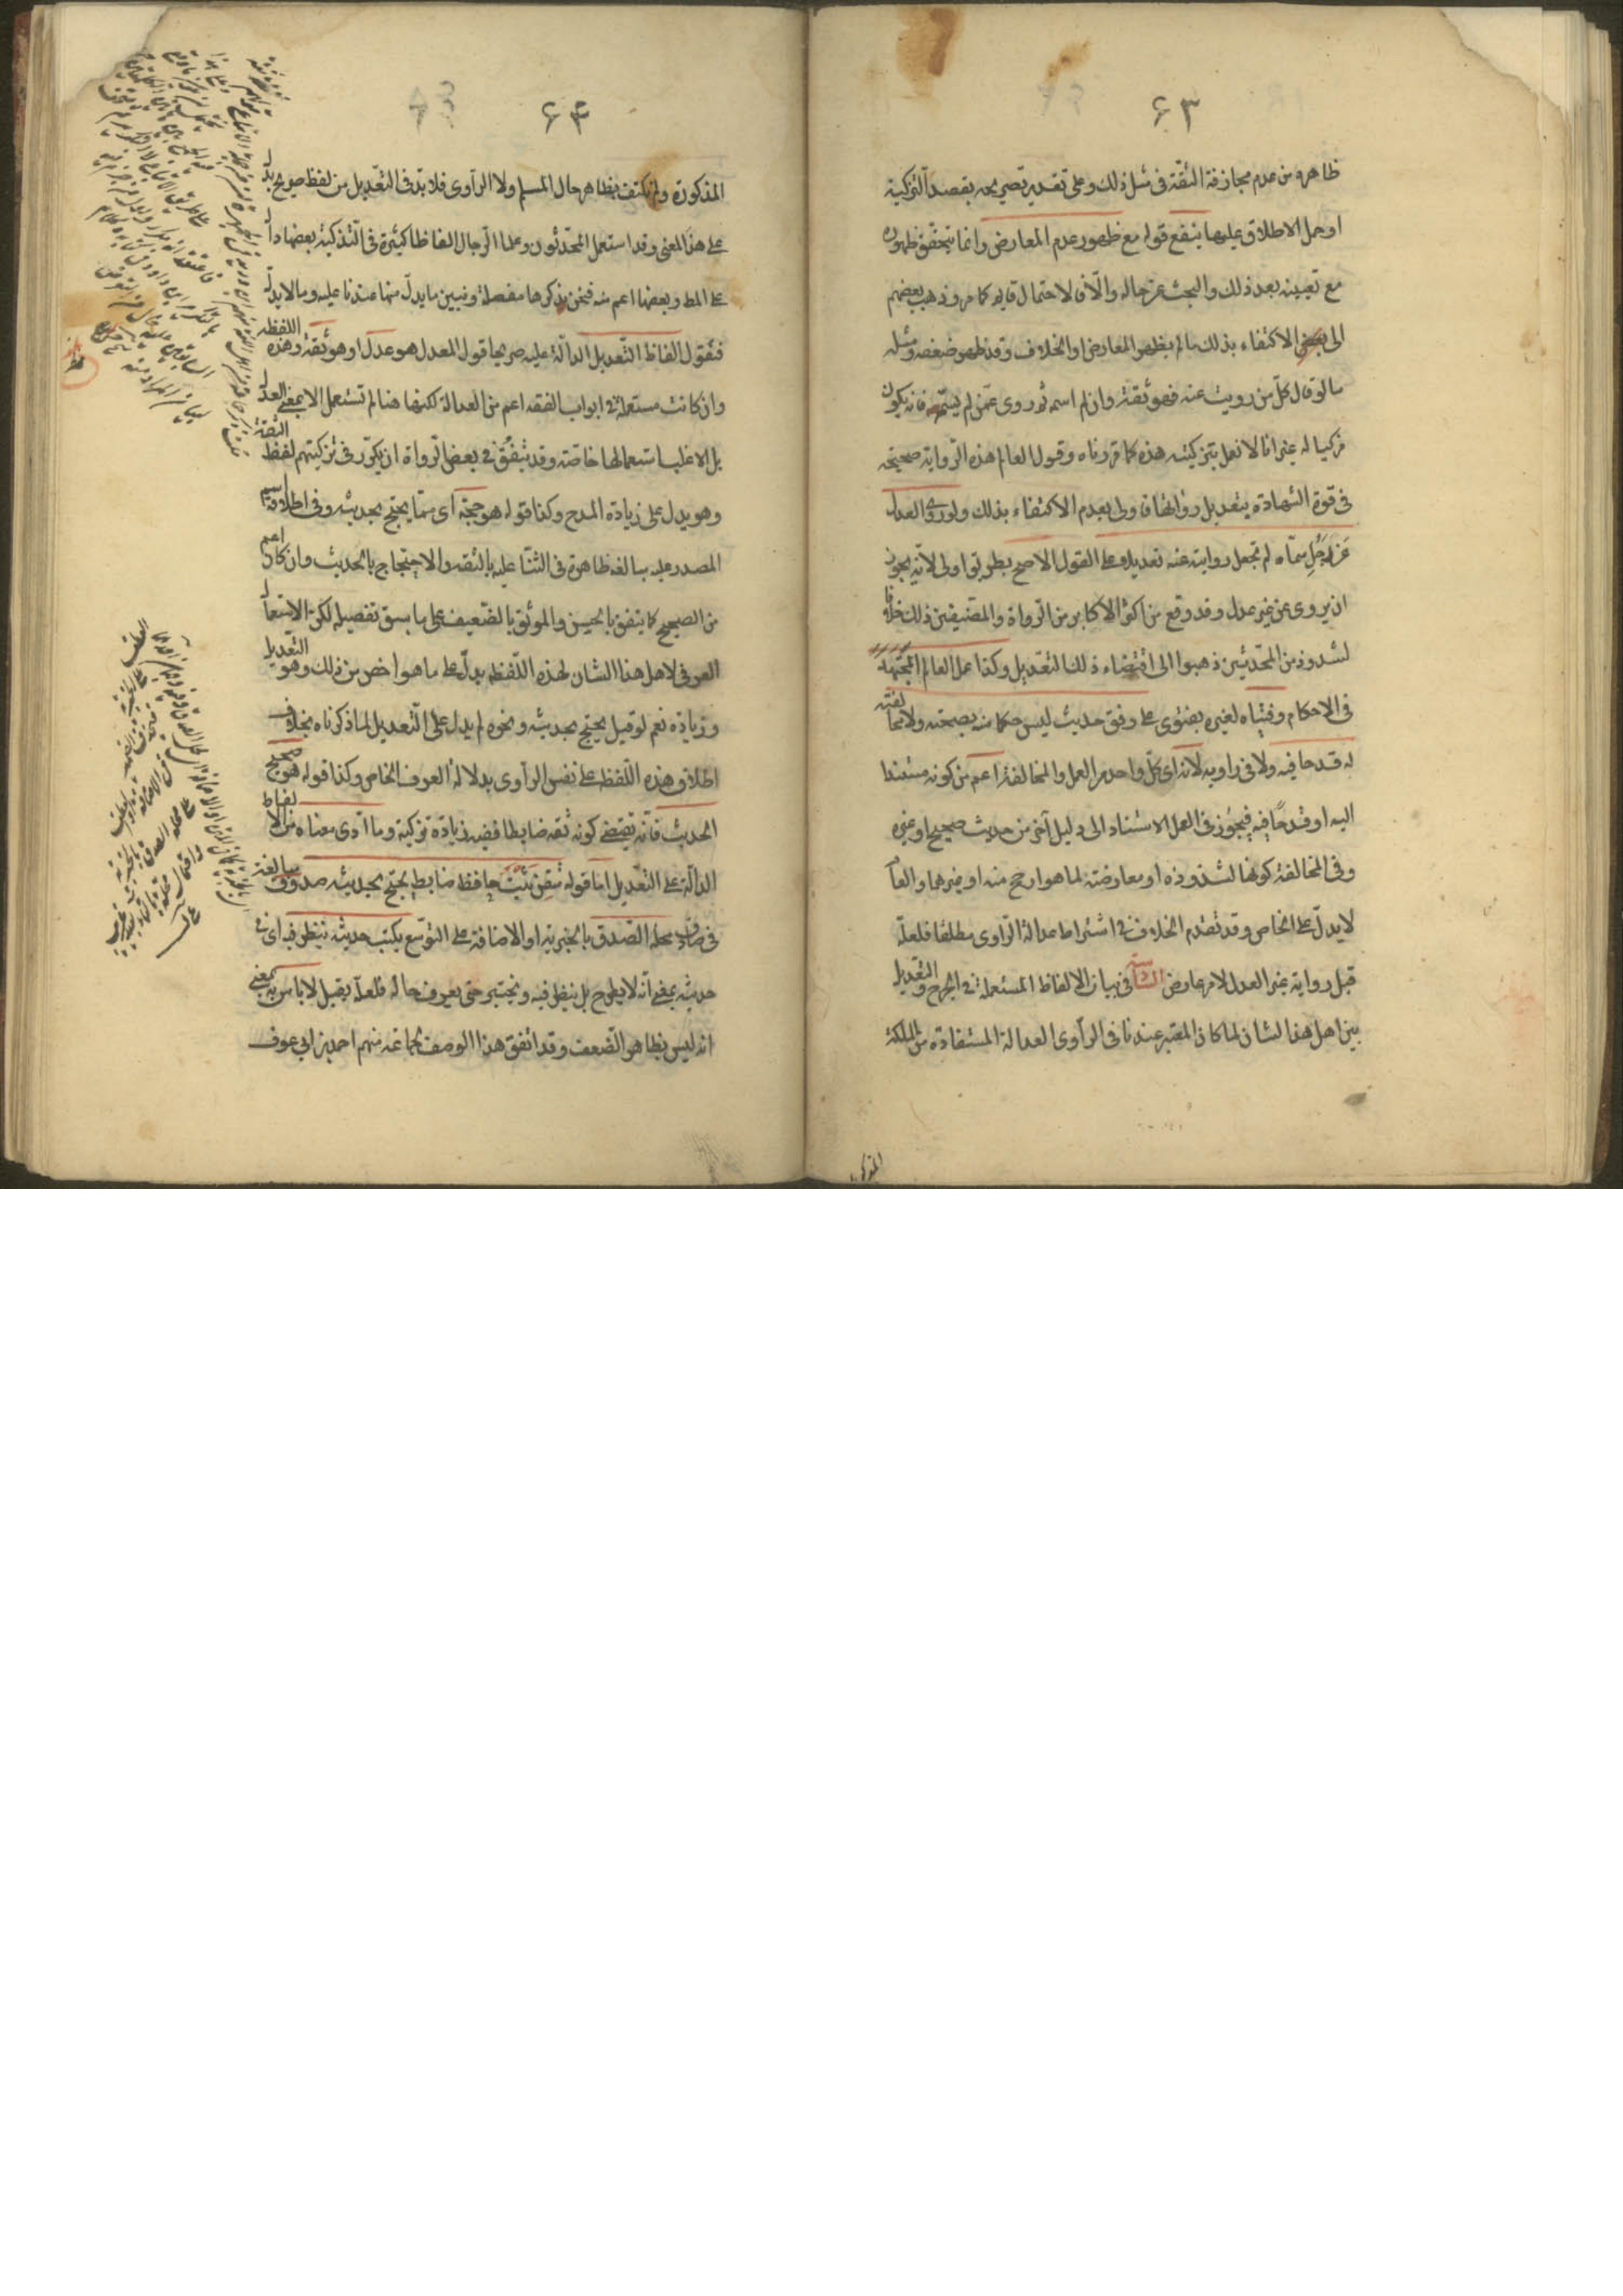 ۶۳
ظاهره من عدم مجازفة الثقة فى مثل ذلك وعلى تقدير تصريحه بقصد التزكية
او حمل الاطلاق عليها ينفع قوله مع ظهور عدم المعارض وانما يتحقق ظهوره
مع تعيينه بعد ذلك والبحث عن حاله والا فالاحتمال قايم كما مر وذهب بعضهم
الى الاكتفاء بذلك ما لم يظهر المعارض او الخلاف وقد ظهر ضعفه ومثله
ما لو قال كل من رويت عنه فهو ثقة وان لم اسمه ثم روى عمن لم يسمه فانه يكون
مزكيا له غير انا لا نعمل بتزكيته هذه كما قررناه وقول العالم هذه الرواية صحيحة
فى قوة الشهادة بتعديل رواتها فاولى بعدم الاكتفاء بذلك ولو روى العدل
عن رجل سماه لم تجعل روايته عنه تعديلا وعلى القول الاصح بطريق اولى لانه يجوز
ان يروى عن غير عدل وقد وقع من اكثر الاكابر من الرواة والمصنفين ذلك خلافا
لشذوذ من المحدثين ذهبوا الى اقتضاء ذلك التعديل وكذا عمل العالم المجتهد
فى الاحكام وفتياه لغيره بفتوى على وفق حديث ليس حكما منه بصحته ولا مخالفته
له قدحا فيه ولا فى راويه لانه اى كل واحد من العمل والمخالفة اعم من كونه مستندا
اليه او قدحا فيه فيجوز فى العمل الاستناد الى دليل آخر من حديث صحيح او غيره
وفى المخالفة كونها لشذوذه او معارضته لما هو ارجح منه او غيرهما والعام
لا يدل على الخاص وقد تقدم الخلاف فى اشتراط عدالة الراوى مطلقا فلعله
قبل رواية غير العدل لامر عارض السادسة فى بيان الالفاظ المستعملة فى الجرح والتعديل
بين اهل هذا الشان لما كان المعتبر عندنا فى الراوى العدالة المستفادة من الملكة
المذكورة
۶۴
المذكورة ولم نكتف بظاهر حال المسلم ولا الراوى فلا بد فى التعديل من لفظ صريح يدل
على هذا المعنى وقد استعمل المحدثون وعلماء الرجال الفاظا كثيرة فى التزكية بعضها دال
على المط وبعضها اعم منه فنحن نذكرها مفصلة ونبين ما يدل منها عندنا عليه وما لا يدل
فنقول الفاظ التعديل الدالة عليه صريحا قول المعدل هو عدل او هو ثقة وهذه اللفظة
وان كانت مستعملة فى ابواب الفقه اعم من العدالة لكنها هنا لم تستعمل الا بمعنى العدل
بل الاغلب استعمالها خاصة وقد يتفق فى بعض الرواة ان يكرر فى تزكيتهم لفظ الثقة
وهو يدل على زيادة المدح وكذا قوله هو حجة اى مما يحتج بحديثه وفى اطلاق اسم
المصدر عليه مبالغة ظاهرة فى الثناء عليه بالثقة والاحتجاج بالحديث وان كان اعم
من الصحيح كما يتفق بالحسن والموثق بالضعيف على ما سبق تفصيله لكن الاستعمال
العرفى لاهل هذا الشان لهذه اللفظة يدل على ما هو اخص من ذلك وهو التعديل
وزيادة نعم لو قيل يحتج بحديثه ونحوه لم يدل على التعديل لما ذكرناه بخلاف
اطلاق هذه اللفظة على نفس الراوى بدلالة العرف الخاص وكذا قوله هو صحيح
الحديث فانه يقتضى كونه ثقة ضابطا ففيه زيادة تزكية وما ادى معناه من الالفاظ
الدالة على التعديل اما قوله متقن ثبت حافظ ضابط يحتج بحديثه صدوق مبالغة
فى صادق محله الصدق بالخبرية او الاضافة على التوسع يكتب حديثه ينظر فيه اى فى
حديثه بمعنى انه لا يطرح بل ينظر فيه ويختبر حتى يعرف حاله فلعله يقبل لا باس به بمعنى
انه ليس بظاهر الضعف وقد اتفق هذا الوصف لجماعة منهم احمد بن ابى عوف